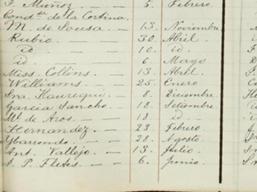 J. Muñoz. — 5. Febrero.
Condª. de la Cortina.
M. de Sousa. — 13. Noviembre
Rubio. — 30. Abril.
id — 10. id.
id — 6. Mayo
Miss. Collins. — 13. Abril.
Williams. — 25. Enero
Sra. — 18. Diciembre
Garcia Sancho. — 18. Setiembre
Mª. de Aros. — 18. id
Hernandez. — 23 Febrero
Ybarrondo. — 28. Agosto.
Ant. Vallejo. — 13. Julio.
A. P. Fletes. — 6. Junio.